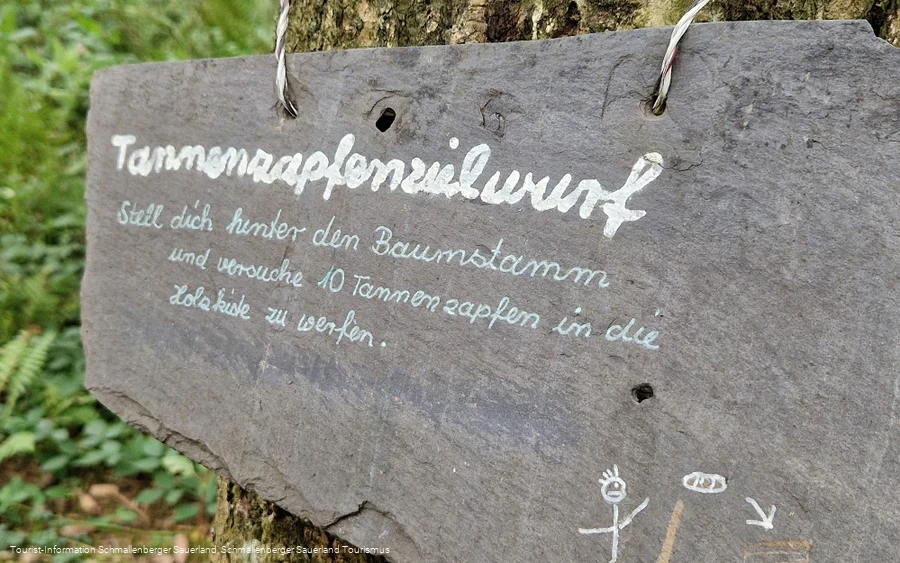 Tannenzapfenzielwurf
Stell dich hinter den Baumstamm
und versuche 10 Tannenzapfen in die
Holzkiste zu werfen.
Tourist-Information Schmallenberger Sauerland, Schmallenberger Sauerland Tourismus